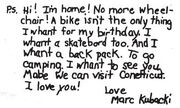 P.S. Hi! I'm home! No more wheel-
chair! A bike isn't the only thing
I whant for my birthday. I
whant a skatebord too. And I
whant a back pack. To go
camping. I whant to see you.
Mabe we can visit Conetticut.
I love you!
Love
Marc Kubacki